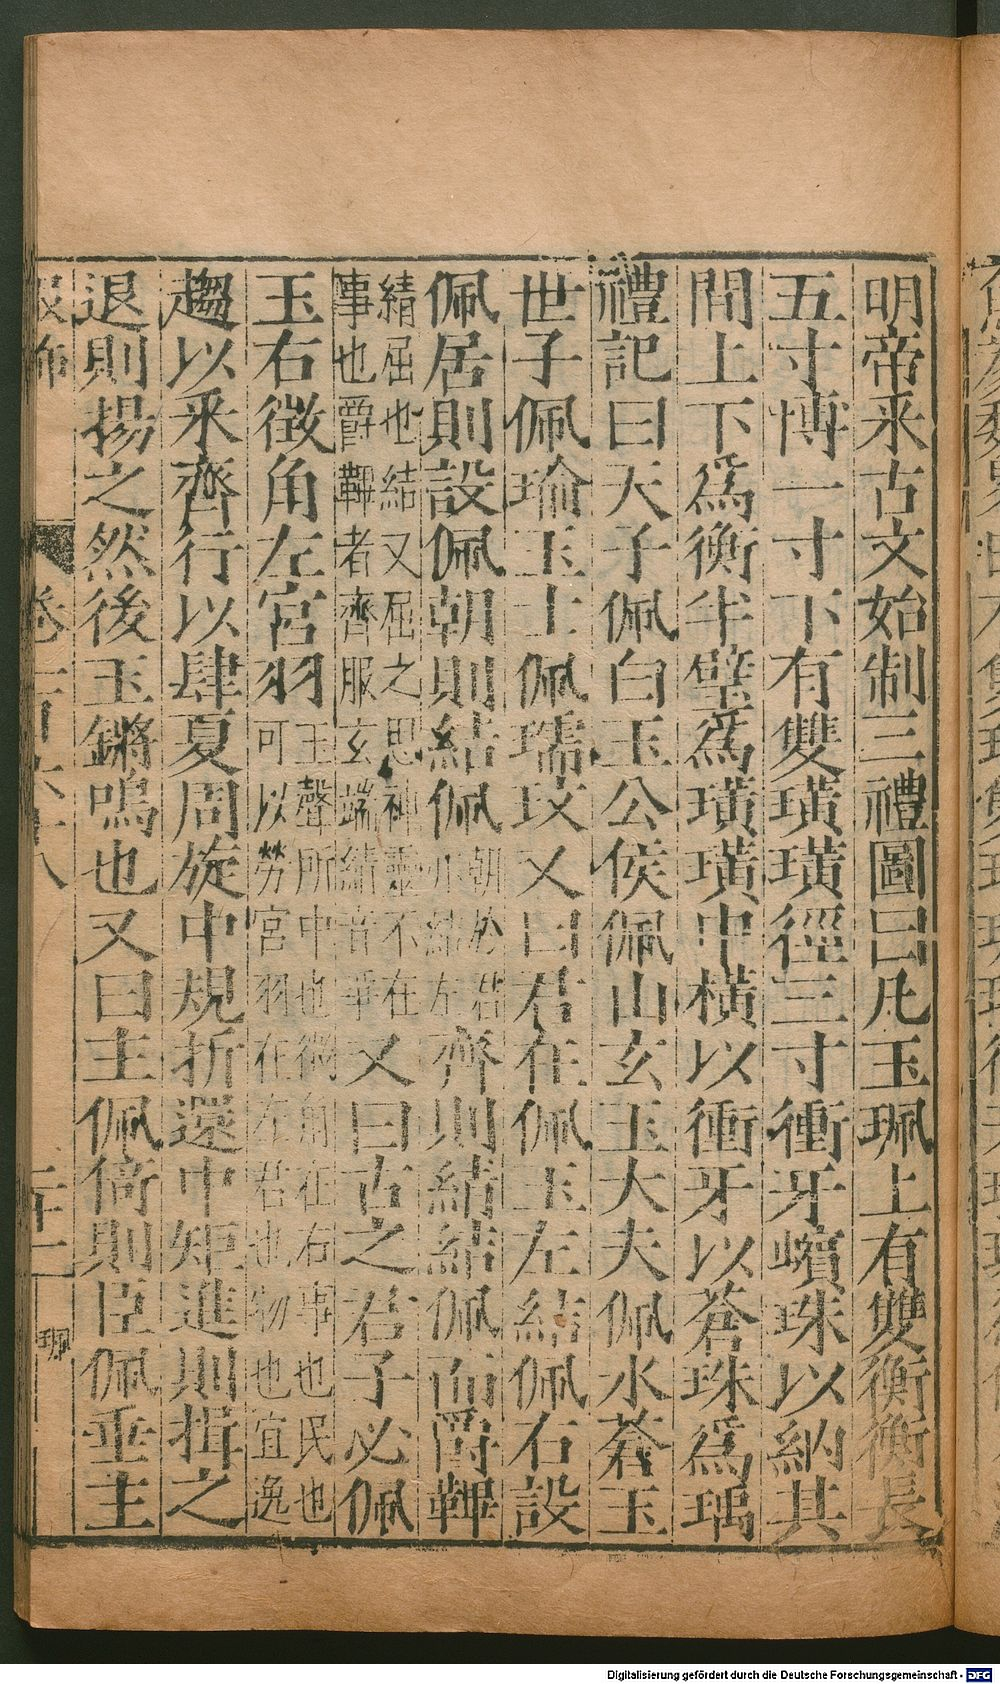 明帝釆古文始制三禮圖曰凡玉珮上有雙衡衡長
五寸博一寸下有雙璜璜徑三寸衝牙蠙珠以納其
間上下爲衡半璧爲璜璜中橫以衝牙以蒼珠爲瑀
禮記曰天子佩白玉公侯佩山玄玉大夫佩水蒼玉
世子佩瑜玉士佩瓀玟又曰君在佩玉左結佩右設
佩居則設佩朝則結佩朝於君亦結左齊則綪結佩而爵鞸
綪屈也結又屈之思神靈不在
事也爵鞸者齊服玄端結音爭又曰古之君子必佩
玉右徵角左宮羽玉聲所中也徵角在右事也民也
可以勞宮羽在左君也物也宜逸
趨以釆齊行以肆夏周旋中規折還中矩進則揖之
退則揚之然後玉鏘鳴也又曰主佩倚則臣佩垂主
服佈
卷二百六十八
二十二
珮
Digitalisierung gefördert durch die Deutsche Forschungsgemeinschaft - DFG